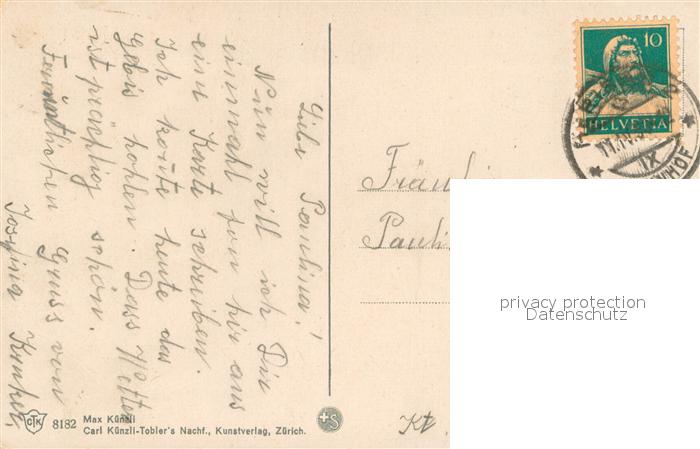 Liebe Paulina!
Nun will ich Dir
einmahl fon hir aus
eine Karte schreiben.
Ich konte heute das
Gebis hohlen. Dass Wetter
ist prächtig schön.
Freundlichen Gruss von
Josefina
Fräul
Pauli
Kt.
10
HELVETIA
IX
HOF
CTK
8182
Max Künzli
Carl Künzli-Tobler's Nachf., Kunstverlag, Zürich.
+S
privacy protection
Datenschutz